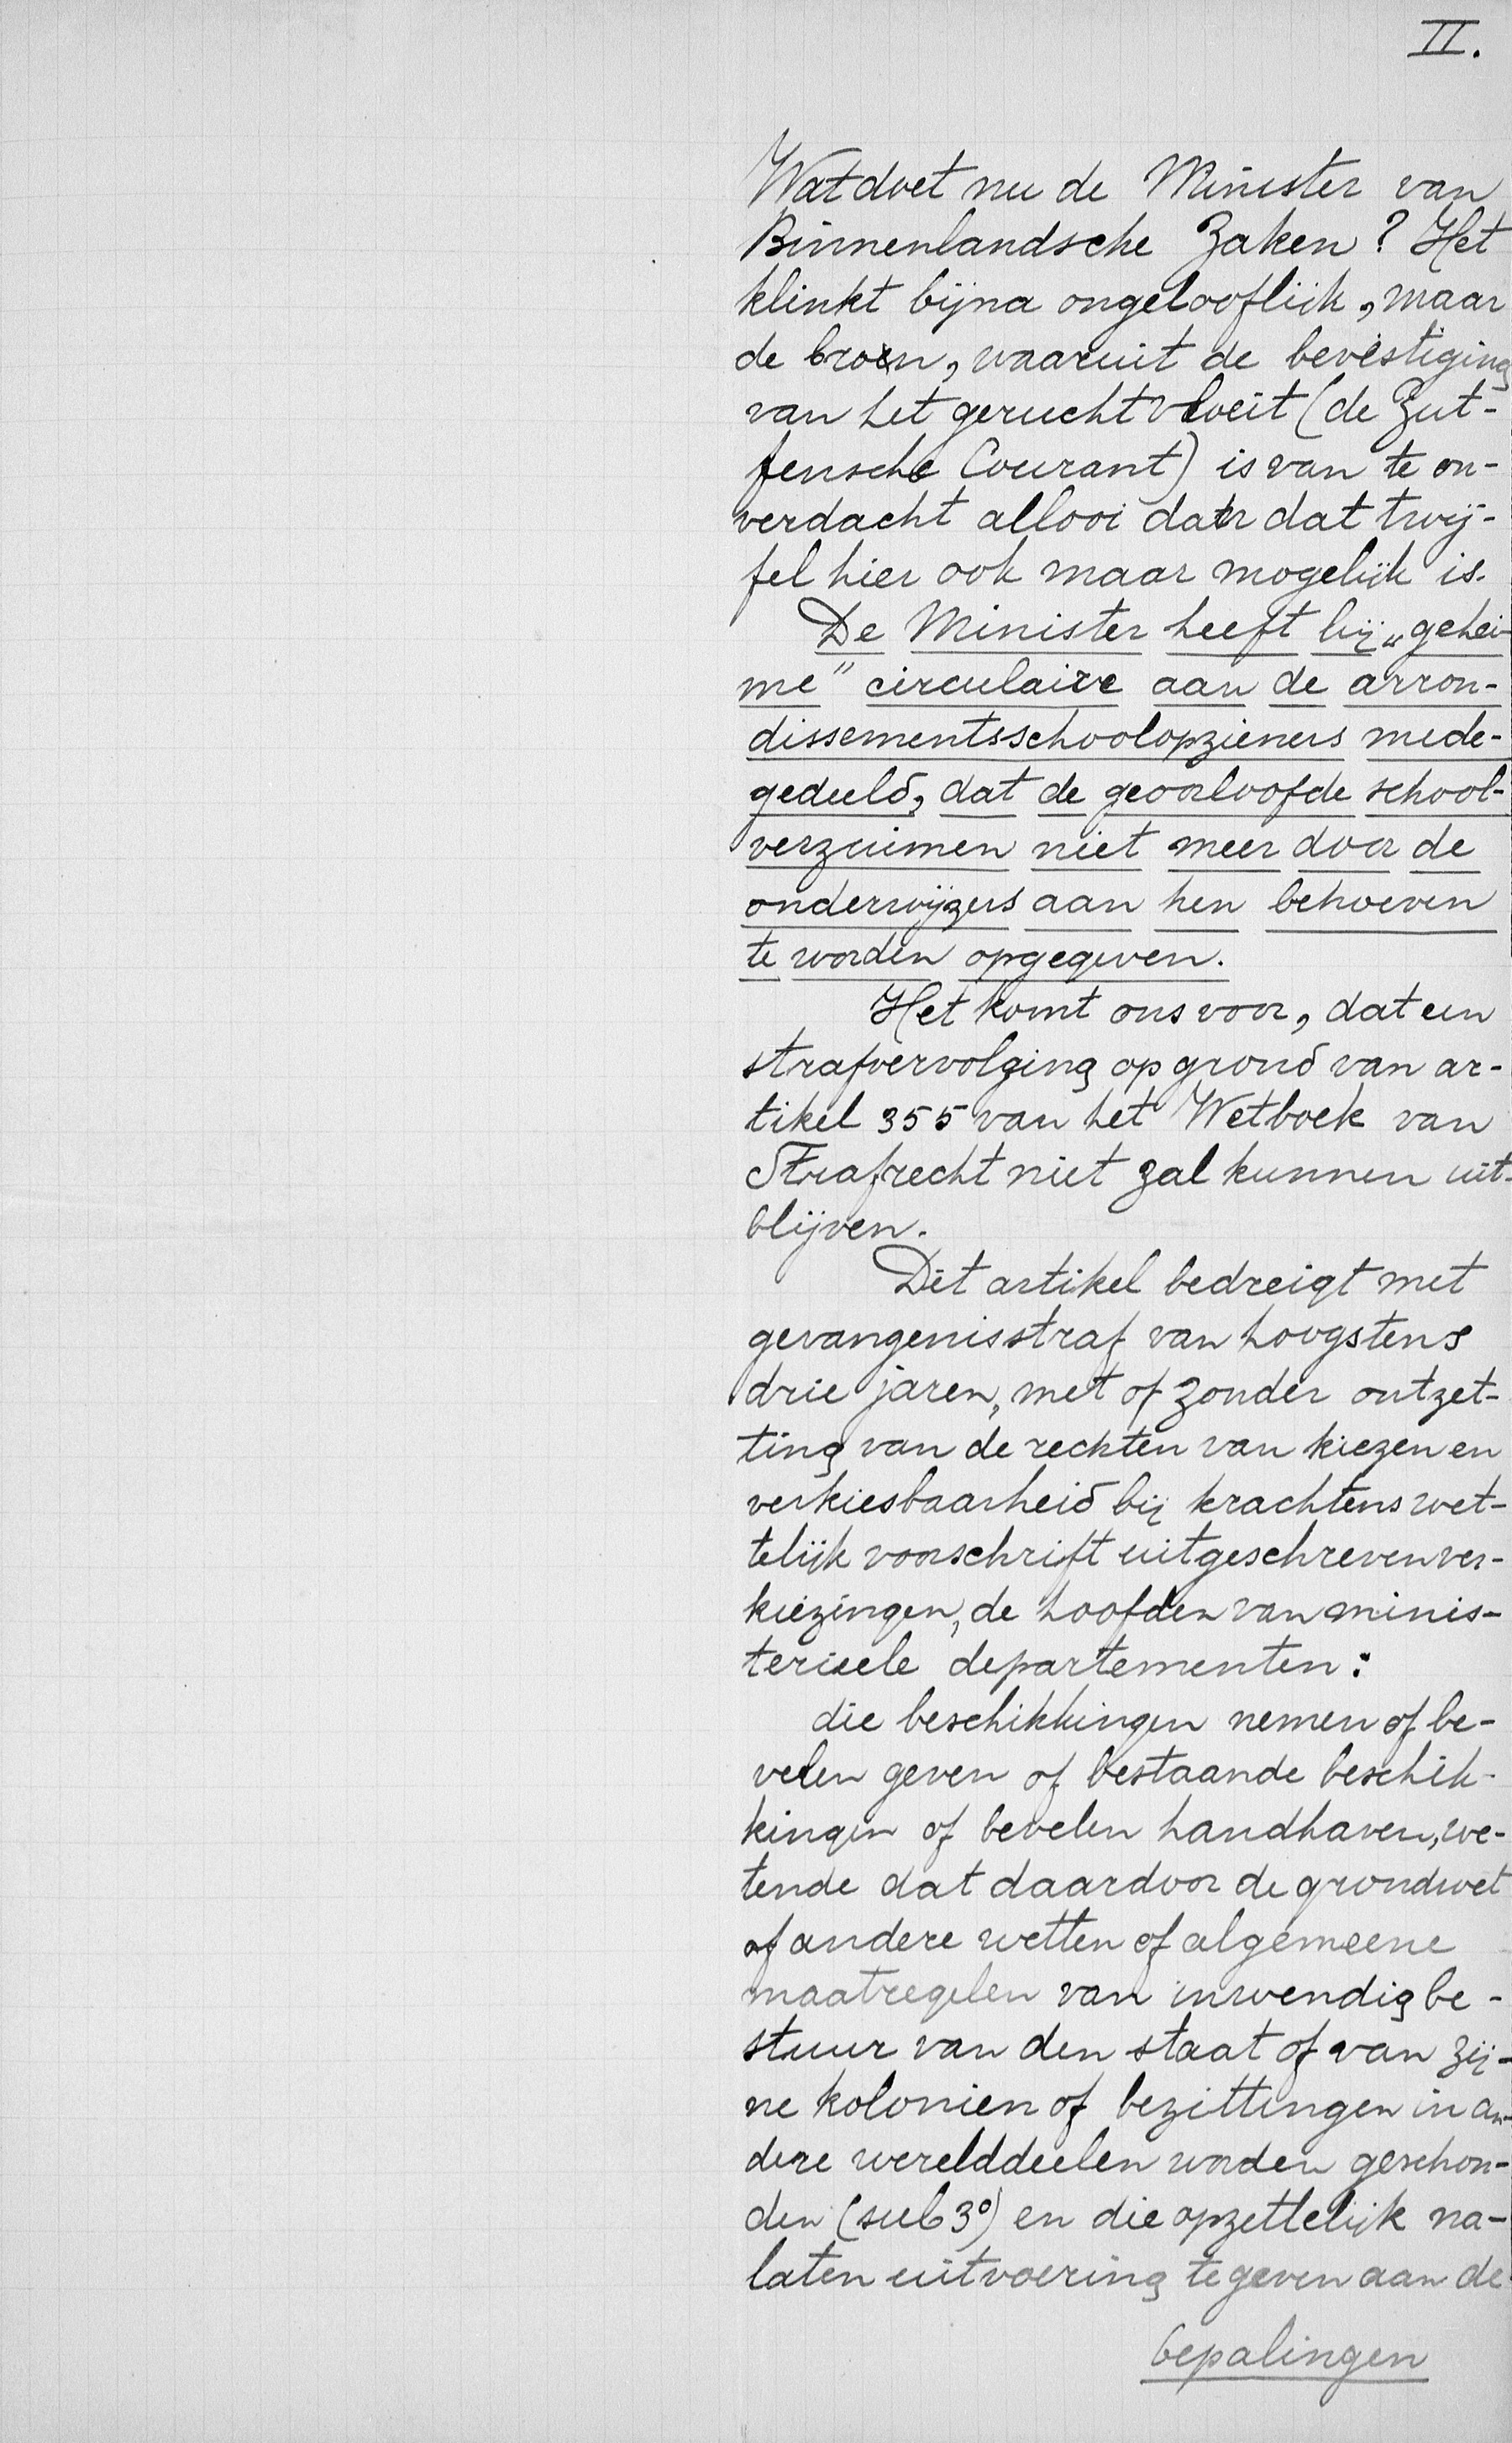 II.
Wat doet nu de Minister van
Binnenlandsche Zaken? Het
klinkt bijna ongelooflijk, maar
de bron, waaruit de bevestiging
van het gerucht vloeit (de Zut-
fensche Courant) is van te on-
verdacht allooi dan dat twij-
fel hier ook maar mogelijk is.
De Minister heeft bij „gehei-
me" circulaire aan de arron-
dissementsschoolopzieners mede-
gedeeld, dat de geoorloofde school-
verzuimen niet meer door de
onderwijzers aan hen behoeven
te worden opgegeven.
Het komt ons voor, dat een
strafvervolging op grond van ar-
tikel 355 van het Wetboek van
Strafrecht niet zal kunnen uit-
blijven.
Dit artikel bedreigt met
gevangenisstraf van hoogstens
drie jaren, met of zonder ontzet-
ting van de rechten van kiezen en
verkiesbaarheid bij krachtens wet-
telijk voorschrift uitgeschreven ver-
kiezingen, de hoofden van minis-
terieele departementen:
die beschikkingen nemen of be-
velen geven of bestaande beschik-
kingen of bevelen handhaven, we-
tende dat daardoor de grondwet
of andere wetten of algemeene
maatregelen van inwendig be-
stuur van den staat of van zij-
ne kolonien of bezittingen in an-
dere werelddeelen worden geschon-
den (sub 3º) en die opzettelijk na-
laten uitvoering te geven aan de
bepalingen